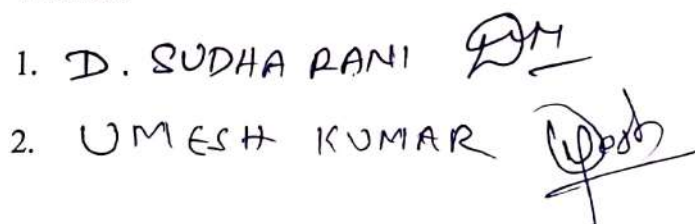 1. D. SUDHA RANI
2. UMESH KUMAR